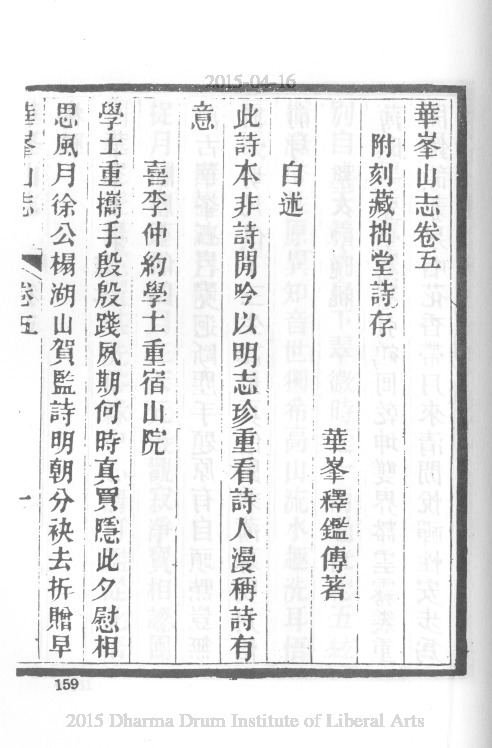 2015-04-16
華峯山志卷五
附刻藏拙堂詩存
華峯釋鑑傳著
自述
此詩本非詩閒吟以明志珍重看詩人漫稱詩有
意
喜李仲約學士重宿山院
學士重攜手殷殷踐夙期何時真買隱此夕慰相
思風月徐公榻湖山賀監詩明朝分袂去折贈早
華峯山志
卷五
一
159
2015 Dharma Drum Institute of Liberal Arts